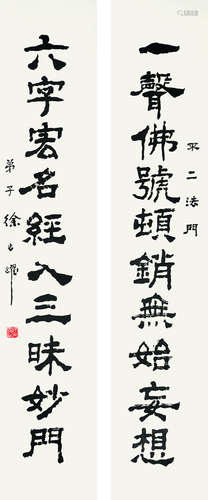 一聲佛號頓銷無始妄想
不二法門
六字宏名經入三昧妙門
弟子徐